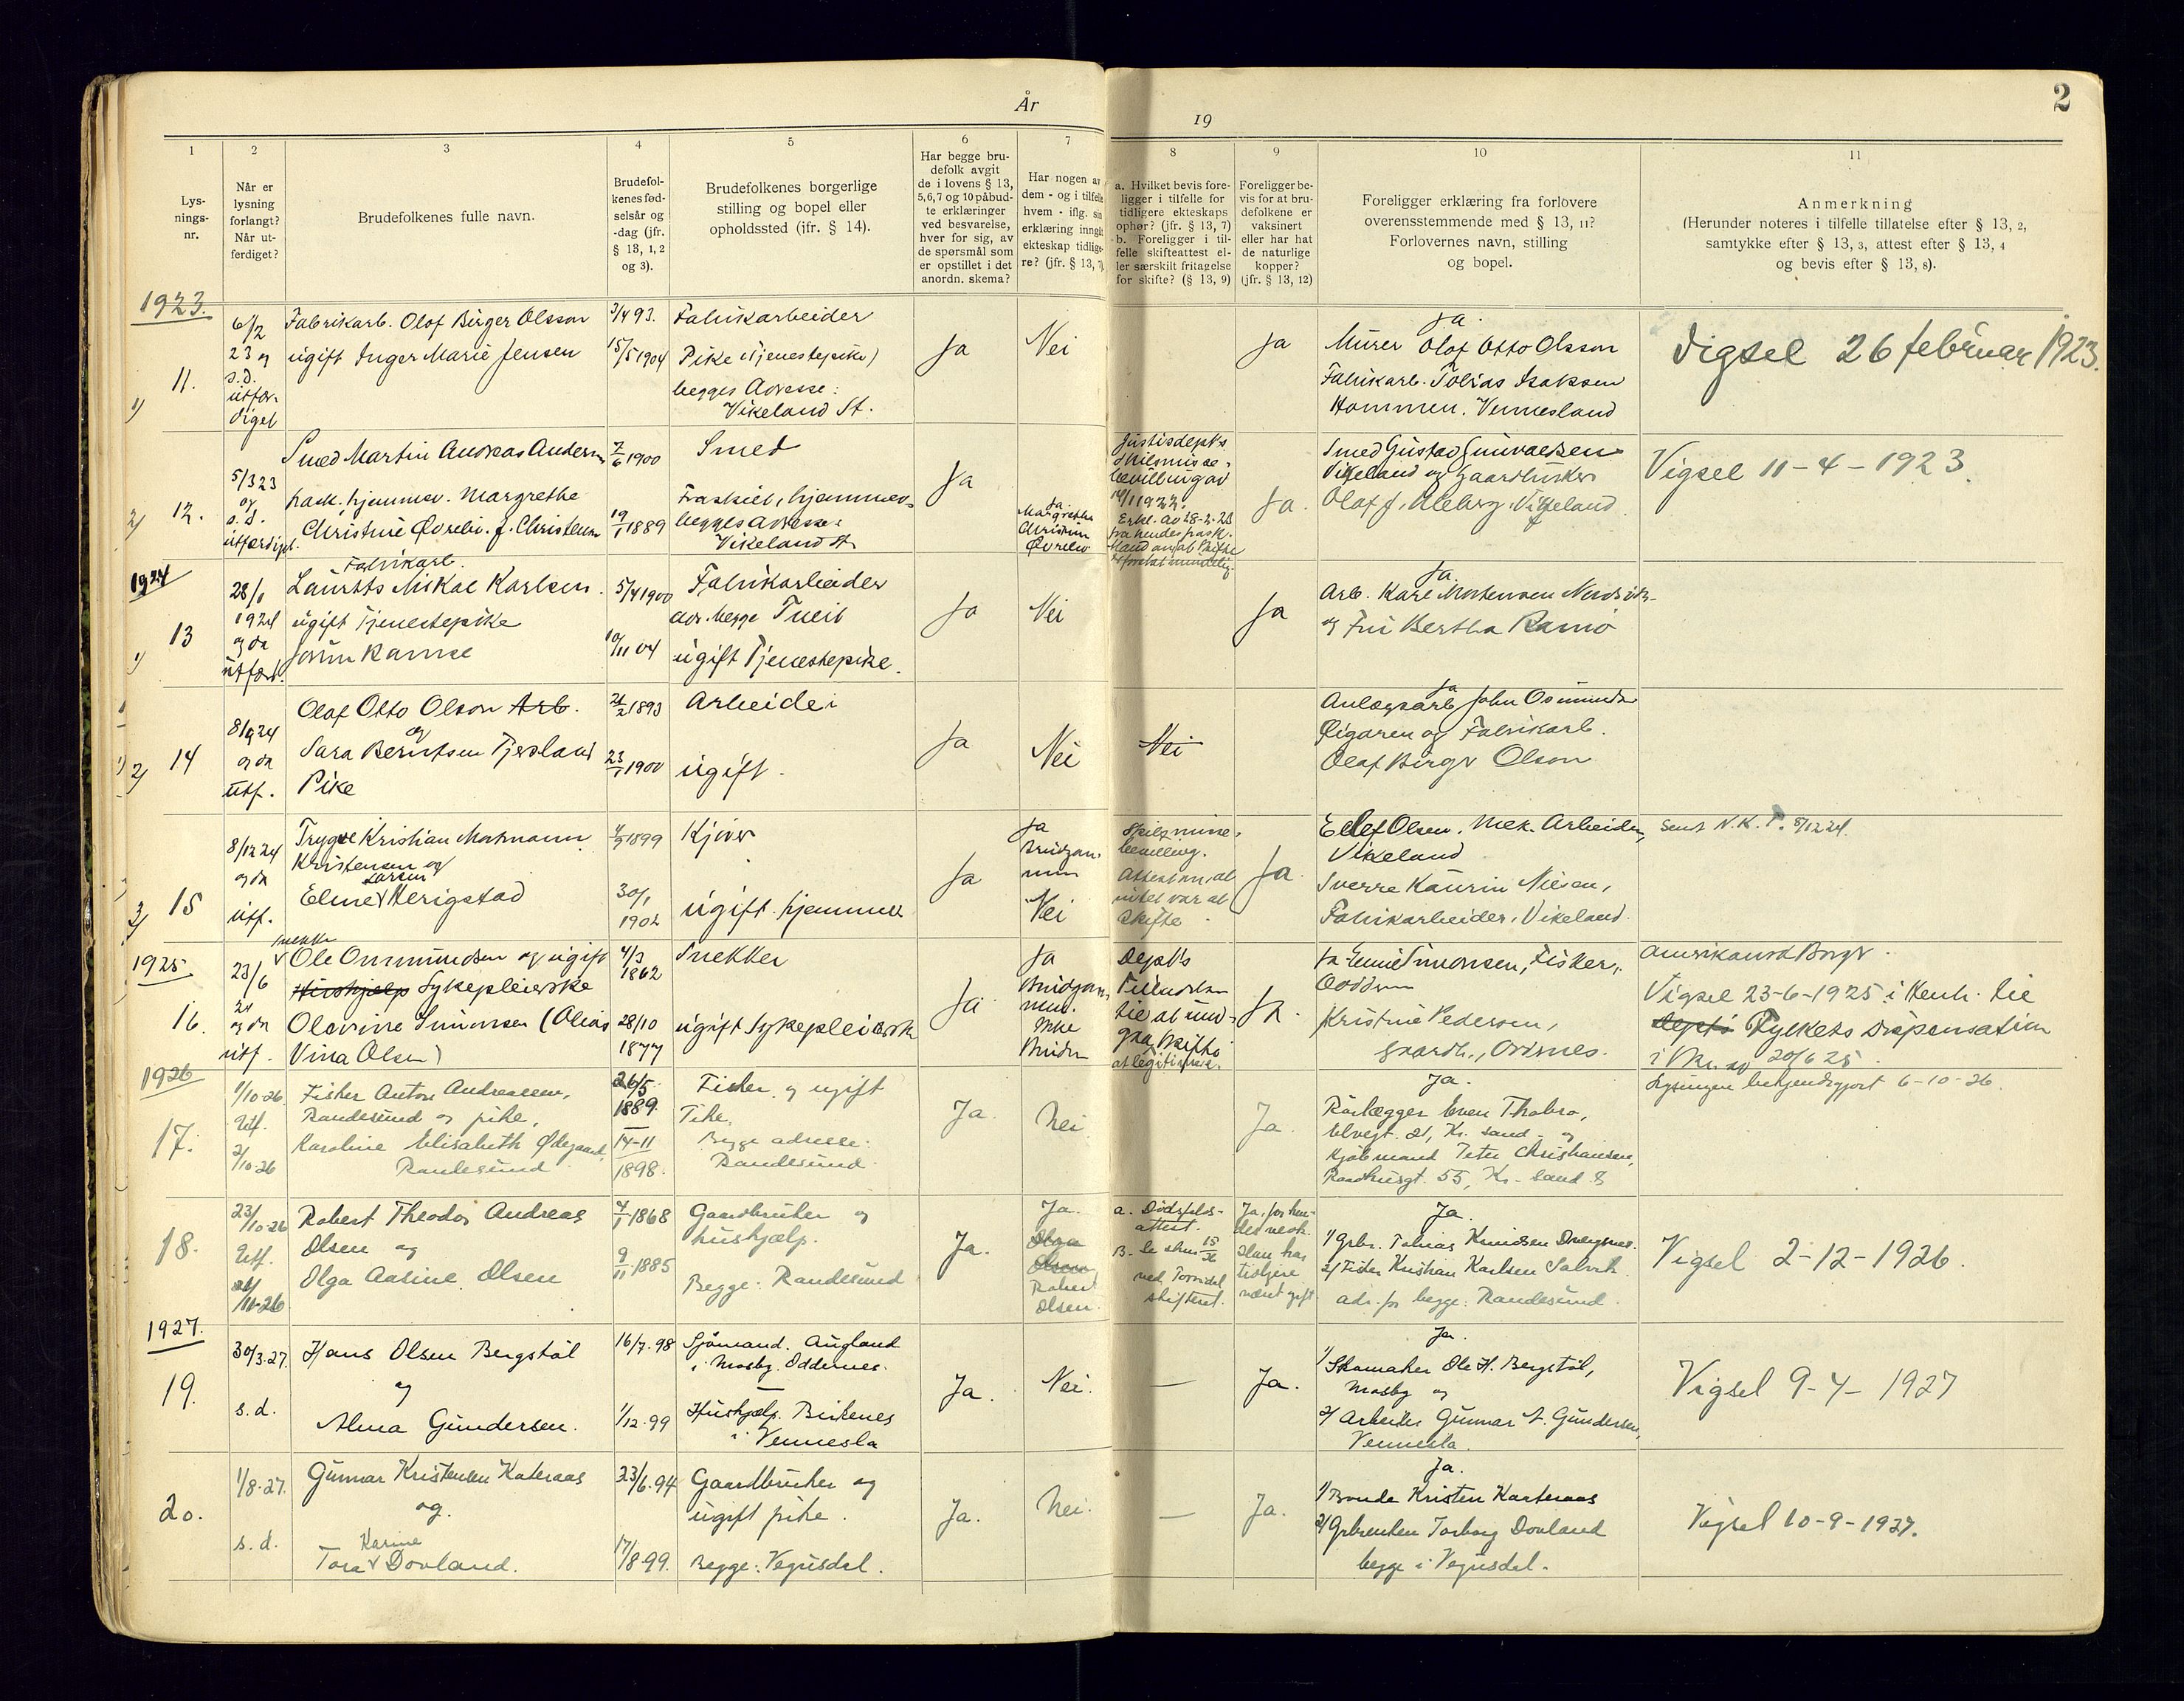 År
19
2
1
2
3
4
5
6
7
8
9
10
11
Lys-
nings-
nr.
Når er
lysning
forlangt?
Når ut-
ferdiget?
Brudefolkenes fulle navn.
Brudefol-
kenes fød-
selsår og
-dag (jfr.
§ 13, 1, 2
og 3).
Brudefolkenes borgerlige
stilling og bopel eller
opholdssted (jfr. § 14).
Har begge bru-
defolk avgit
de i lovens § 13,
5,6,7 og 10 påbud-
te erklæringer
ved besvarelse,
hver for sig, av
de spørsmål som
er opstillet i det
anordn. skema?
Har nogen av
dem - og i tilfelle
hvem - iflg. sin
erklæring inngått
ekteskap tidlige-
re? (jfr. § 13, 7)
a. Hvilket bevis fore-
ligger i tilfelle for
tidligere ekteskaps
ophør? (jfr. § 13, 7)
b. Foreligger i til-
felle skifteattest el-
ler særskilt fritagelse
for skifte? (§ 13, 9)
Foreligger be-
vis for at bru-
defolkene er
vaksinert
eller har hat
de naturlige
kopper?
(jfr. § 13, 12)
Foreligger erklæring fra forlovere
overensstemmende med § 13, 11?
Forlovernes navn, stilling
og bopel.
Anmerkning
(Herunder noteres i tilfelle tillatelse efter § 13, 2,
samtykke efter § 13, 3, attest efter § 13, 4
og bevis efter § 13, 8).
1923.
1)
11.
6/2
23 og
s.d.
utfær-
diget
Fabrikarb. Olof Birger Olsson
ugift Inger Marie Jensen
3/4 93.
15/5 1904
Fabrikarbeider
Pike (Tjenestepike)
begges Adresse:
Vikeland St.
Ja
Nei
Ja
Ja.
Murer Olof Otto Olsson
Fabrikarb. Tobias Isaksen
Hommen. Vennesland
Vigsel 26 februar 1923.
2)
12.
5/3 23
og
s.d.
utfærdiget.
Smed Martin Andreas Andersen
frask. hjemmev. Margrethe
Christine Øvrebø. f. Christensen
7/6 1900
19/1 1889
Smed
Fraskilt, hjemmev.
begges adresse:
Vikeland St
Ja
Ja.
Margrethe
Christine
Øvrebø
Justisdept's
Skilsmisse-
bevilling av
1922.
Erkl. av 28-2-23
fra hendes frask.
Mand om at skifte
Ja.
Smed Gustav Gunvaldsen
Vikeland og Gaardbruker
Olaf J. Aleberg, Vikeland
Vigsel 11-4-1923.
1924
1)
13
28/1
1924
og da
utfærd.
Fabrikarb.
Laurits Mikal Karlsen.
ugift Tjenestepike
5/4 1900
10/11 04
Fabrikarbeider
adr. begge Tveit
ugift Tjenestepike.
Ja
Nei
Ja
Ja.
Arb. Karl Mortensen
og Fru Bertha
2)
14
8/9 24
og da
utf.
Olaf Otto Olson Arb.
og
Sara Berntsen Tjersland
Pike
1893
23/1 1900
Arbeider
ugift.
Ja
Nei
Nei
Ja
Anlægsarb John Osmundsen
og Fabrikarb.
Olaf Birger Olson
3)
15
8/12 24
og da
utf.
Trygve Kristian Normann
Kristensen og
Larsen
Elmer Herigstad
1899
30/1
1902
Kjører
ugift. hjemmev
Ja
Ja
Brudgom-
men
Nei
Skilsmisse-
bevilling.
Attest om, at
intet var at
skifte
Ja.
Ellef Olsen. Mek. Arbeider,
Vikeland
Sverre Kaurin Nilsen,
Fabrikarbeider, Vikeland.
Sent N.K.T. 8/12 24.
1925
16.
23/6
24
og da
utf.
snekker
Ole Ommundsen og ugift
Hushjælp Sykepleierske
Olevine Simonsen (Alias
Vina Olsen)
4/3
1862
28/10
1877
Snekker
ugift Sykepleierske
Ja
Ja
Brudgom-
men.
Ikke
Bruden
Dept's
Tilladelse
til at und-
gaa Skifte
Ja.
Ja Simonsen, Fisker,
Kristine Pedersen,
Amerikansk Borger.
Vigsel 23-6-1925 i Henh. til
dept's Fylkets Dispensation
i Skr. av 20/6 25.
1926
17.
1/10-26.
Utf.
2/10-26
Fisker Anton Andreassen,
Randesund og pike,
Karoline Elisabeth Ødegaard,
Randesund
26/5
1889
14-11
1898.
Fisker og ugift
Pike.
Begge adresse:
Randesund.
Ja.
Nei
Ja.
Ja.
Rørlægger Even Thobro,
Elvegt. 21, Kr. sand - og
Kjøbmand Peter Christiansen,
Raadhusgt. 55, Kr. sand S
Lysningen bekjendtgjort 6-10-26.
18.
23/10-26
Utf.
Robert Theodor Andreas
Olsen og
Olga Aasine Olsen
1868
9/11 1885
Gaardbruker og
hushjælp.
Begge: Randesund
Ja.
Ja.
Olga
Olsen
Robert
Olsen.
a. Dødsfalds-
attest.
ved Torridal
skifteret.
Ja, for hen-
des vedk.
Han har
tidligere
været gift.
Ja.
1/ Grbr. Tobias Knudsen Dvergsnes.
2/ Fisker Kristian Karlsen
adr. for begge: Randesund.
Vigsel 2-12-1926.
1927.
19.
30/3-27.
s.d.
Hans Olsen Bergstøl
og
Alma Gundersen.
16/7-98
1/12-99
Sjømand. Augland
i Mosby. Oddernes.
Hushjælp. Birkenes
i Vennesla
Ja.
Nei.
—
Ja.
Ja.
1/ Skomaker Ole H. Bergstøl,
Mosby og
2/ Arbeider Gunnar A. Gundersen,
Vennesla.
Vigsel 9-4-1927
20.
1/8-27.
s.d.
Gunnar Kristensen Kateraas
og.
Karine
Tora Dovland.
23/6-94
17/8-99.
Gaardbruker og
ugift pike.
Begge: Vegusdal.
Ja.
Nei.
—
Ja.
Ja.
1/ Bonde Kristen Kateraas
2/ Torborg Dovland
begge i Vegusdal.
Vigsel 10-9-1927.